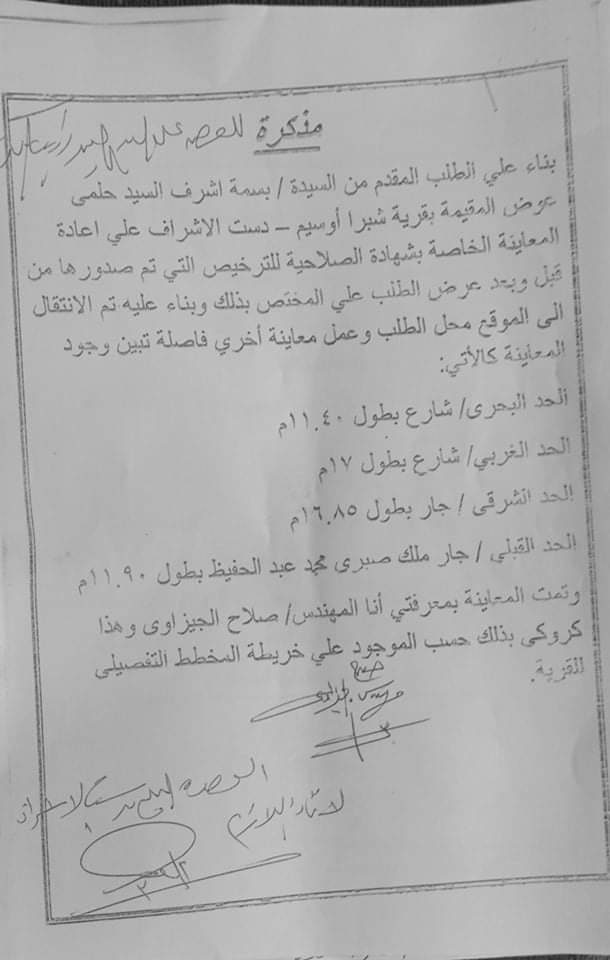 مذكرة للعرض على
بناء علي الطلب المقدم من السيدة / بسمة اشرف السيد حلمى
عوض المقيمة بقرية شبرا أوسيم – دست الاشراف علي اعادة
المعاينة الخاصة بشهادة الصلاحية للترخيص التي تم صدورها من
قبل وبعد عرض الطلب علي المختص بذلك وبناء عليه تم الانتقال
الى الموقع محل الطلب وعمل معاينة أخري فاصلة تبين وجود
المعاينة كالأتي:
الحد البحرى/ شارع بطول ١١.٤٠م
الحد الغربي/ شارع بطول ١٧م
الحد الشرقى / جار بطول ١٦.٨٥م
الحد القبلي / جار ملك صبرى محمد عبد الحفيظ بطول ١١.٩٠م
وتمت المعاينة بمعرفتي أنا المهندس/ صلاح الجيزاوى وهذا
كروكى بذلك حسب الموجود علي خريطة المخطط التفصيلى
للقرية.
لاتخاذ اللازم